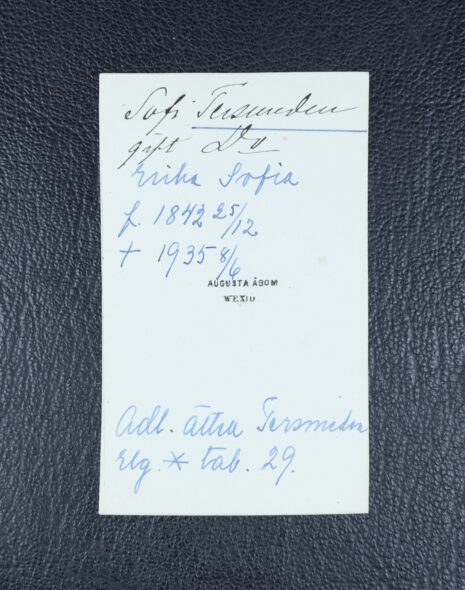 Sofi Tersmeden
gift Do
Erika Sofia
f. 1842 25/12
+ 1935 8/6
AUGUSTA ÅBOM
WEXIO
Adl. ätten Tersmeden
Elg. * tab. 29.